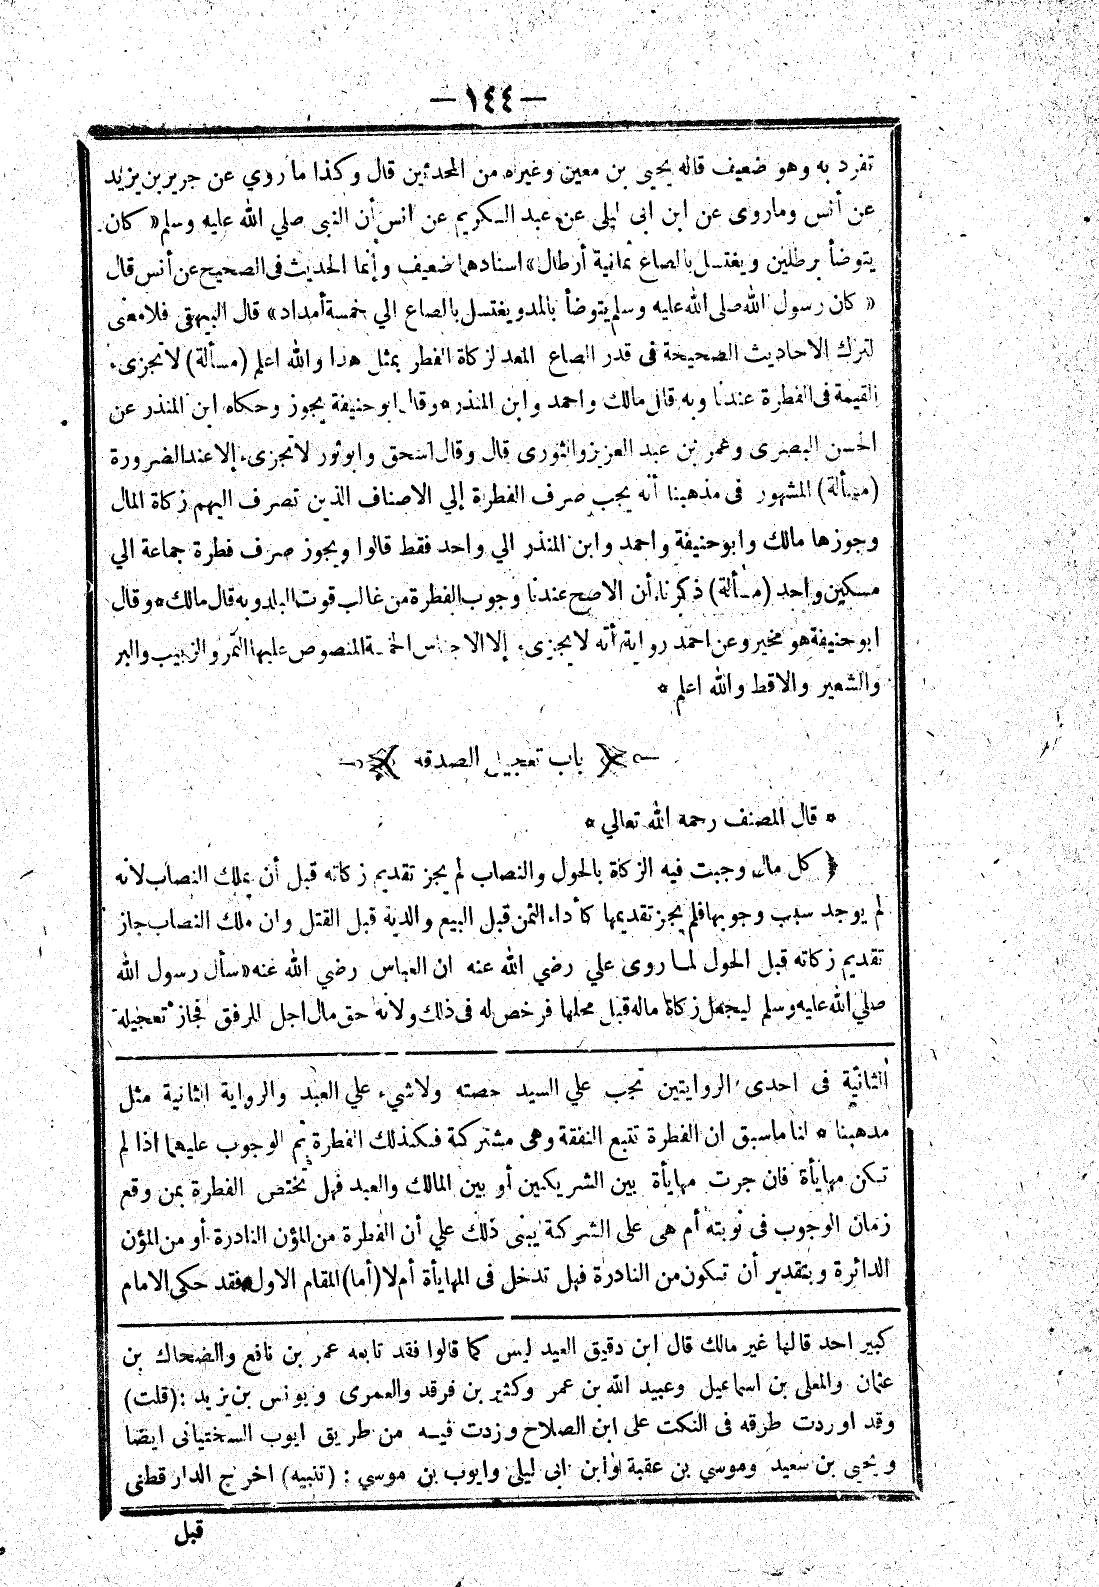 — ١٤٤ —
تفرد به وهو ضعيف قاله يحيى بن معين وغيره من المحدثين قال وكذا ما روي عن جرير بن يزيد
عن أنس وماروى عن ابن ابى ليلى عن عبد الكريم عن انس أن النبى صلي الله عليه وسلم « كان
يتوضأ برطلين ويغتسل بالصاع ثمانية أرطال » اسنادهما ضعيف وإنما الحديث فى الصحيح عن أنس قال
« كان رسول الله صلى الله عليه وسلم يتوضأ بالمد ويغتسل بالصاع الي خمسة أمداد » قال البيهقى فلا معنى
لترك الاحاديث الصحيحة فى قدر الصاع المعد لزكاة الفطر بمثل هذا والله اعلم (مسألة) لا تجزىء
القيمة فى الفطرة عندنا وبه قال مالك واحمد وابن المنذر * وقال ابو حنيفة يجوز وحكاه ابن المنذر عن
الحسن البصرى وعمر بن عبد العزيز والثورى قال وقال اسحق وابو ثور لا تجزىء إلا عند الضرورة
(مسألة) المشهور فى مذهبنا أنه يجب صرف الفطرة إلي الاصناف الذين تصرف اليهم زكاة المال
وجوزها مالك وابو حنيفة واحمد وابن المنذر الي واحد فقط قالوا ويجوز صرف فطرة جماعة الي
مسكين واحد (مسألة) ذكرنا أن الاصح عندنا وجوب الفطرة من غالب قوت البلد وبه قال مالك * وقال
ابو حنيفة هو مخير وعن احمد رواية أنه لا يجزىء إلا الاجناس الخمسة المنصوص عليها التمر والزبيب والبر
والشعير والاقط والله اعلم *
باب تعجيل الصدقة
* قال المصنف رحمه الله تعالي *
﴿ كل مال وجبت فيه الزكاة بالحول والنصاب لم يجز تقديم زكاته قبل أن يملك النصاب لانه
لم يوجد سبب وجوبها فلم يجز تقديمها كأداء الثمن قبل البيع والدية قبل القتل وان ملك النصاب جاز
تقديم زكاته قبل الحول لما روى علي رضي الله عنه ان العباس رضي الله عنه « سأل رسول الله
صلي الله عليه وسلم ليعجل زكاة ماله قبل محلها فرخص له فى ذلك ولانه حق مال اجل للرفق فجاز تعجيله
الثانية فى احدى الروايتين تجب علي السيد حصته ولا شيء علي العبد والرواية الثانية مثل
مذهبنا * لنا ما سبق ان الفطرة تتبع النفقة وهى مشتركة فكذلك الفطرة ثم الوجوب عليهما اذا لم
تكن مهايأة فان جرت مهايأة بين الشريكين أو بين المالك والعبد فهل تختص الفطرة بمن وقع
زمان الوجوب فى نوبته أم هى على الشركة يبنى ذلك علي أن الفطرة من المؤن النادرة أو من المؤن
الدائرة وبتقدير أن تكون من النادرة فهل تدخل فى المهايأة أم لا (أما) المقام الاول * فقد حكى الامام
كبير احد قالها غير مالك قال ابن دقيق العيد ليس كما قالوا فقد تابعه عمر بن نافع والضحاك بن
عثمان والمعلى بن اسماعيل وعبيد الله بن عمر وكثير بن فرقد والعمرى ويونس بن يزيد : (قلت)
وقد اوردت طرقه فى النكت على ابن الصلاح وزدت فيه من طريق ايوب السختيانى ايضا
ويحيى بن سعيد وموسي بن عقبة وابن ابى ليلى وايوب بن موسي : (تنبيه) اخرج الدارقطنى
قبل